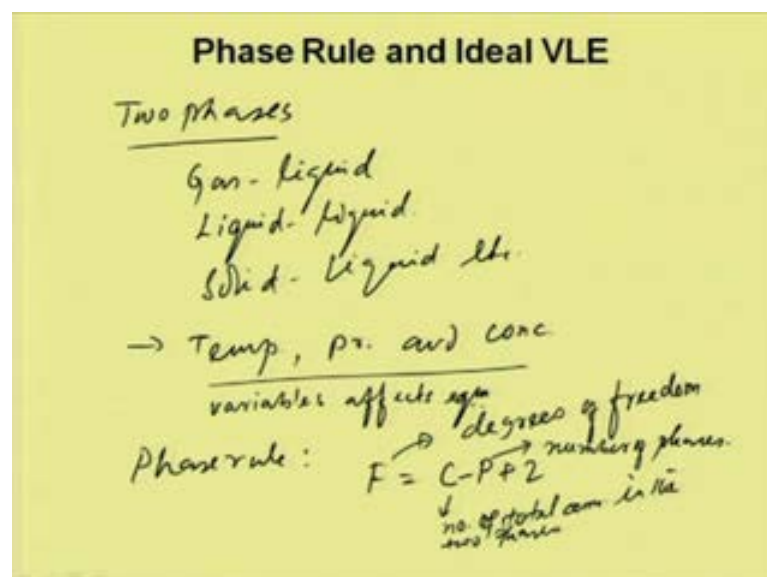 Phase Rule and Ideal VLE
Two phases
Gas - liquid
Liquid - liquid
Solid - Liquid etc.
→ Temp, pr. and conc
variables affects eqm
degrees of freedom
Phase rule : F = C-P+2 number of phases.
no. of total com. in the
two phases